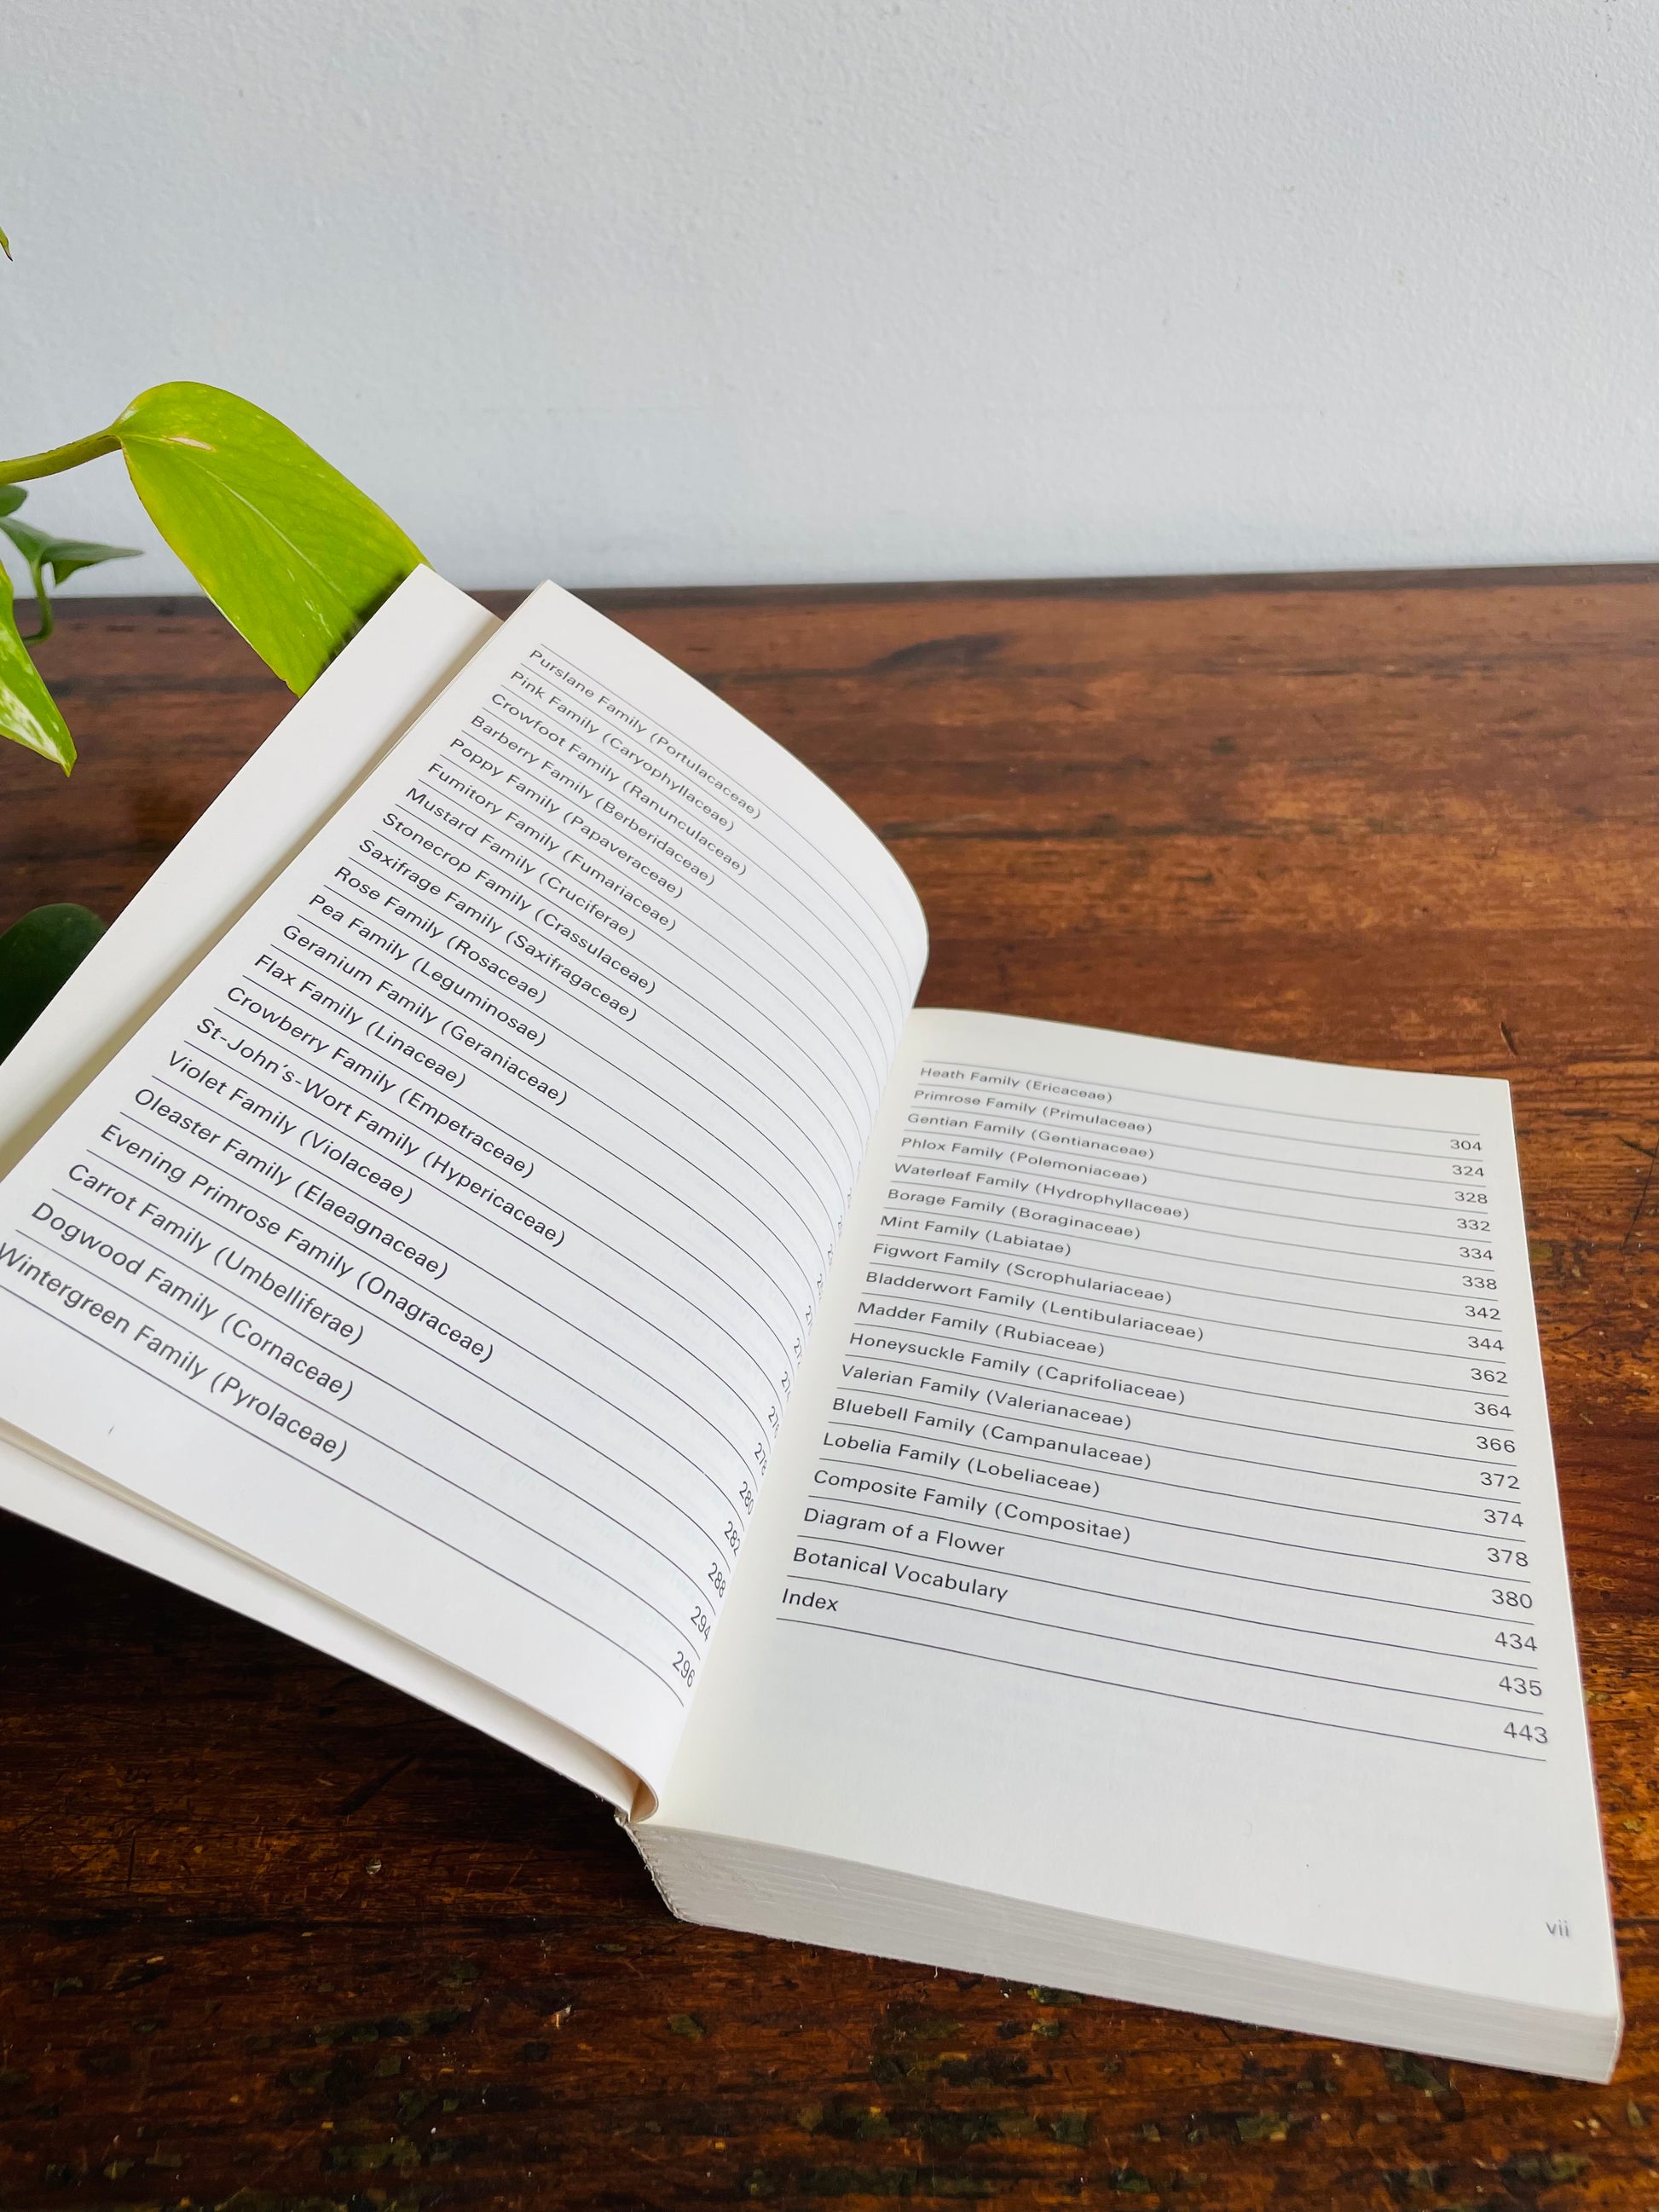 Purslane Family (Portulacaceae)
Pink Family (Caryophyllaceae)
Crowfoot Family (Ranunculaceae)
Barberry Family (Berberidaceae)
Poppy Family (Papaveraceae)
Fumitory Family (Fumariaceae)
Mustard Family (Cruciferae)
Stonecrop Family (Crassulaceae)
Saxifrage Family (Saxifragaceae)
Rose Family (Rosaceae)
Pea Family (Leguminosae)
Geranium Family (Geraniaceae)
Flax Family (Linaceae)
Crowberry Family (Empetraceae)
St-John's-Wort Family (Hypericaceae)
Violet Family (Violaceae)
Oleaster Family (Elaeagnaceae) 280
Evening Primrose Family (Onagraceae) 282
Carrot Family (Umbelliferae) 288
Dogwood Family (Cornaceae) 294
Wintergreen Family (Pyrolaceae) 296
Heath Family (Ericaceae) 304
Primrose Family (Primulaceae) 324
Gentian Family (Gentianaceae) 328
Phlox Family (Polemoniaceae) 332
Waterleaf Family (Hydrophyllaceae) 334
Borage Family (Boraginaceae) 338
Mint Family (Labiatae) 342
Figwort Family (Scrophulariaceae) 344
Bladderwort Family (Lentibulariaceae) 362
Madder Family (Rubiaceae) 364
Honeysuckle Family (Caprifoliaceae) 366
Valerian Family (Valerianaceae) 372
Bluebell Family (Campanulaceae) 374
Lobelia Family (Lobeliaceae) 378
Composite Family (Compositae) 380
Diagram of a Flower 434
Botanical Vocabulary 435
Index 443
vii